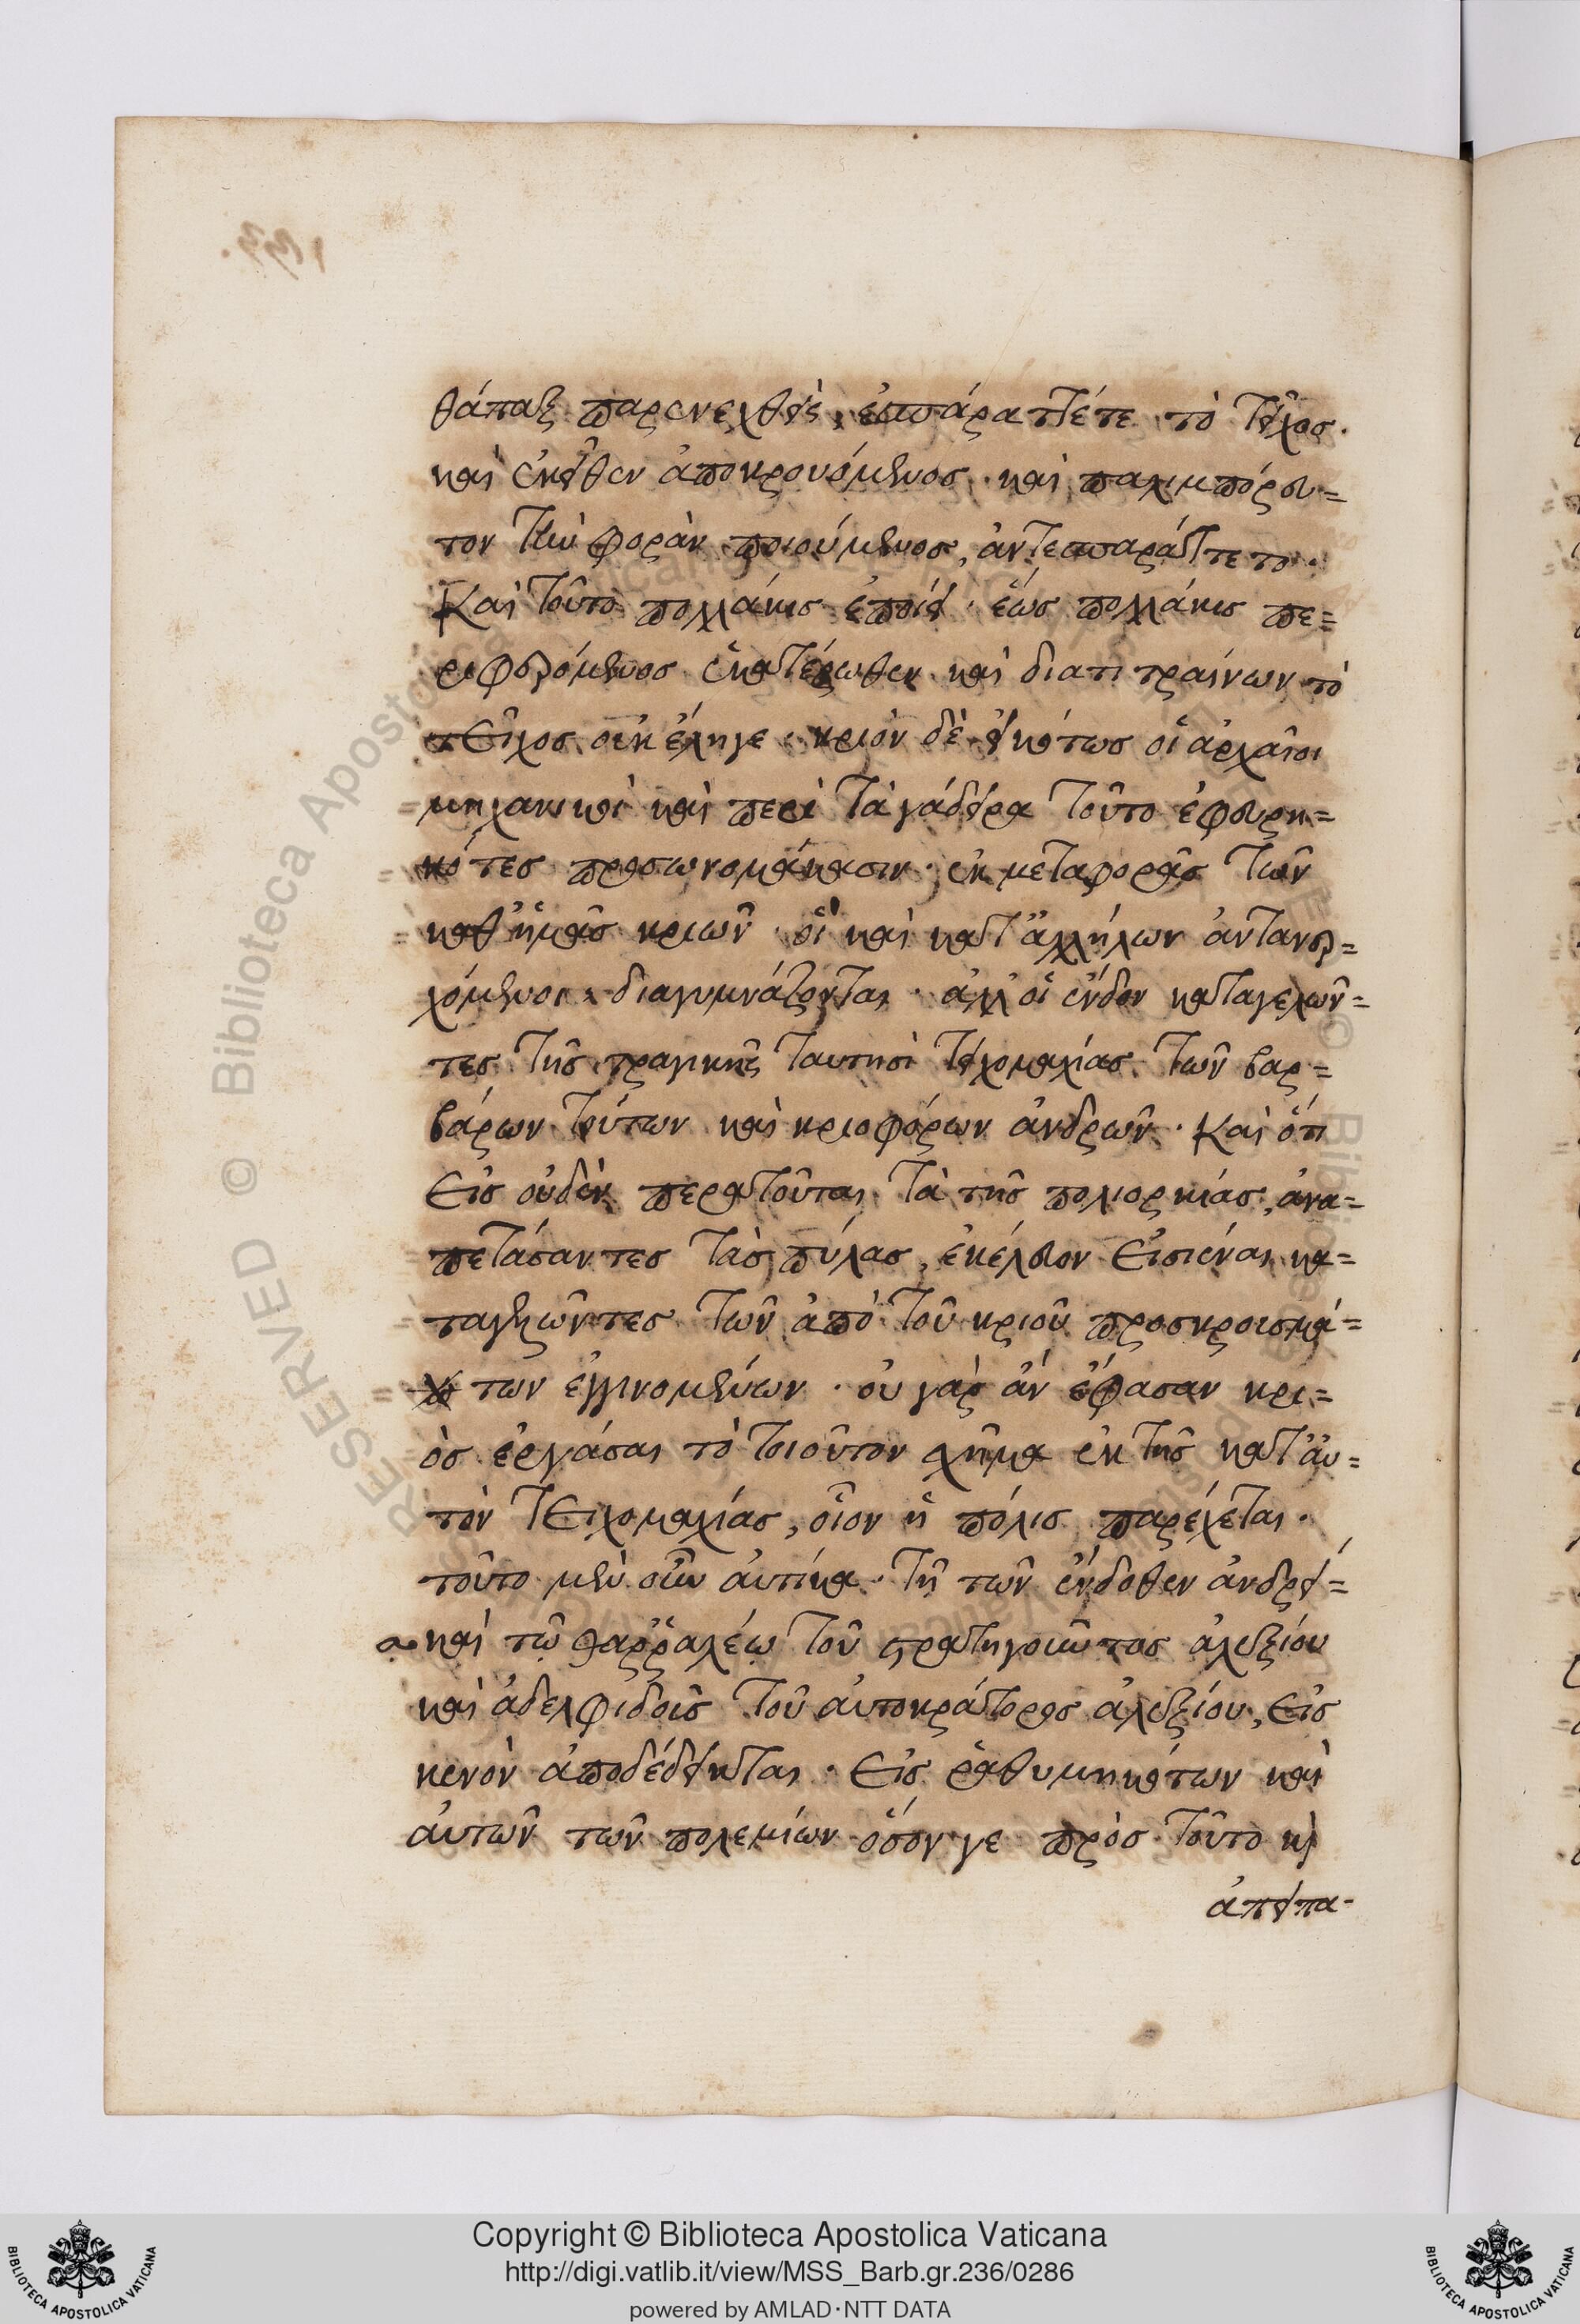 θάπαξ παρενεχθεὶς, ἐσπάραττέ τε τὸ τεῖχος.
καὶ ἐκεῖθεν ἀποκρουόμενος· καὶ παλιμπόρευ=
τον τὴν φορὰν ποιούμενος, ἀντεσπαράττετο.
Καὶ τοῦτο πολλάκις ἐποίει· ἕως πολλάκις πε=
ριφερόμενος ἑκατέρωθεν καὶ διατιτραίνων τὸ
τεῖχος οὐκ ἔληγε· κριὸν δὲ εἰκότως οἱ ἀρχαῖοι
= μηχανικοὶ καὶ περὶ τὰ γάδειρα τοῦτο ἐφευρη=
= κότες προσωνομάκασιν· ἐκ μεταφορᾶς τῶν
= καθ ἡμᾶς κριῶν· οἳ καὶ κατ ἀλλήλων ἀντανερ=
χόμενοι, διαγυμνάζονται· ἀλλ οἱ ἔνδον καταγελῶν=
τες τῆς τραγικῆς ταυτησὶ τειχομαχίας τῶν βαρ=
βάρων τούτων καὶ κριοφόρων ἀνδρῶν· Καὶ ὅτι
εἰς οὐδὲν περατοῦται τὰ τῆς πολιορκίας, ἀνα=
πετάσαντες τὰς πύλας, ἐκέλευον εἰσιέναι κα=
ταγελῶντες τῶν ἀπὸ τοῦ κριοῦ προσκρουσμά=
= των ἐγγινομένων· οὐ γὰρ ἂν ἔφασαν κρι=
ὸς ἐργάσαι τὸ τοιοῦτον χῆμα ἐκ τῆς κατ ἀυ=
τὸν τειχομαχίας, οἷον ἡ πόλις παρέχεται·
τοῦτο μὲν οὖν ἀυτίκα· τῇ τῶν ἔνδοθεν ἀνδρεί=
α καὶ τῷ θαῤῥαλέῳ τοῦ στρατηγοῦντος ἀλεξίου
καὶ ἀδελφιδοῦς τοῦ ἀυτοκράτορος ἀλεξίου, εἰς
κενὸν ἀποδέδεικται· εἰς ῥαθυμηκότων καὶ
ἀυτῶν τῶν πολεμίων ὅσον γε πρὸς τοῦτο κὶ
ἀπειπα-
Copyright © Biblioteca Apostolica Vaticana
http://digi.vatlib.it/view/MSS_Barb.gr.236/0286
powered by AMLAD·NTT DATA
BIBLIOTECA APOSTOLICA VATICANA
BIBLIOTECA APOSTOLICA VATICANA